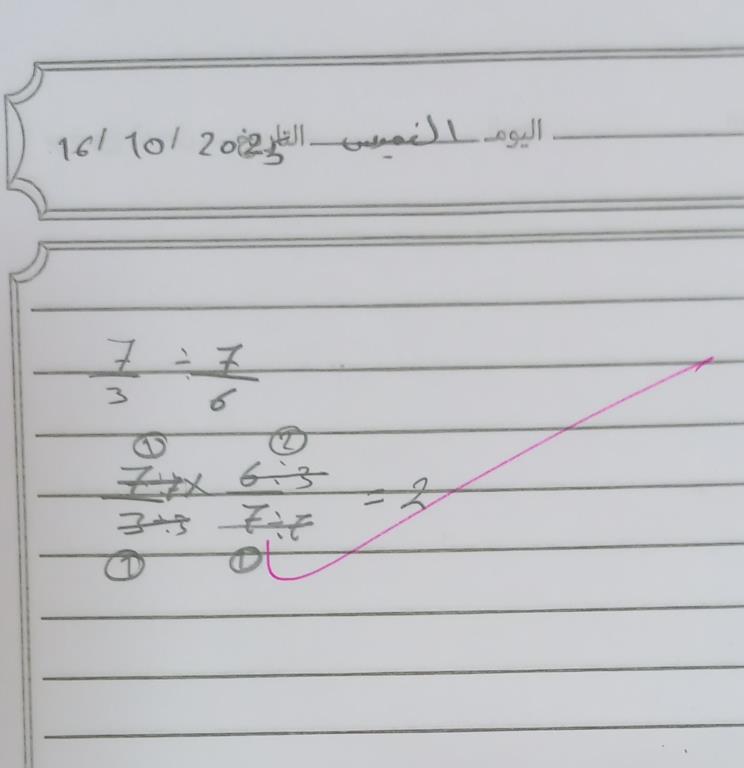 اليوم الخميس التاريخ 16/ 10/ 2025
7/3 ÷ 7/6
① ②
7÷7/3÷3 × 6÷3/7÷7 = 2
① ①